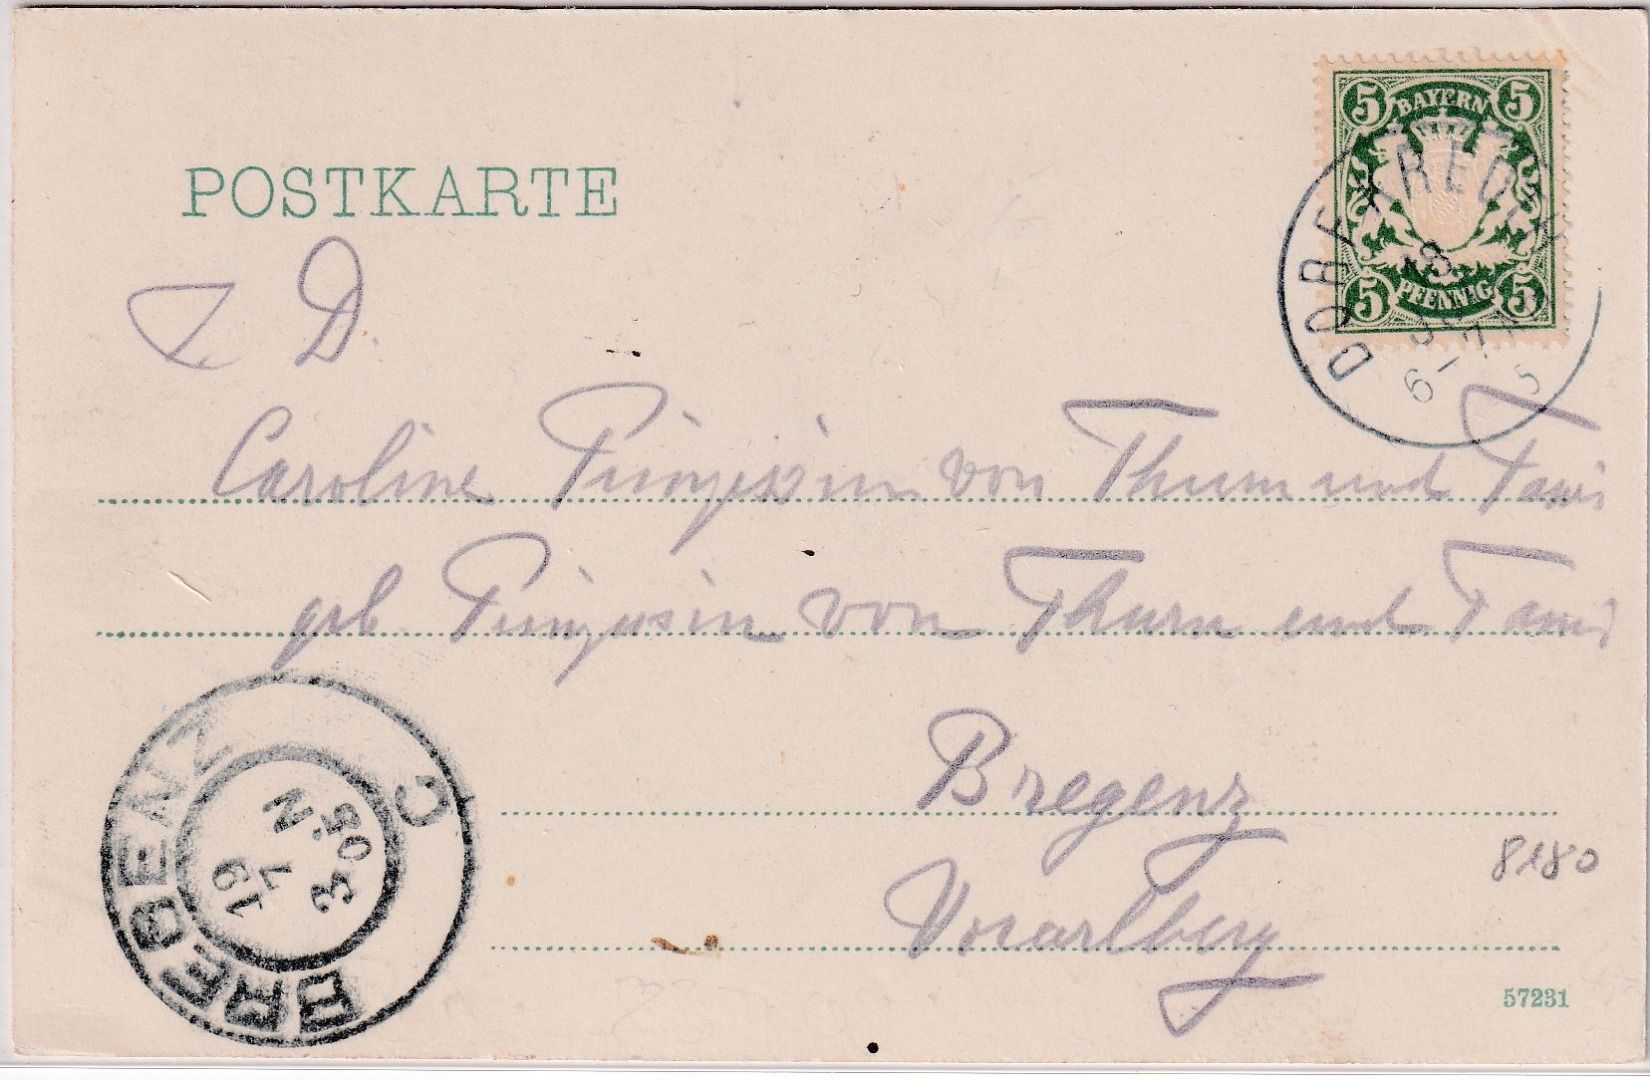 POSTKARTE
5 BAYERN 5
5 PFENNIG 5
6-7
I. D.
Caroline Prinzessin von Thurn und Taxis
geb. Prinzessin von Thurn und Taxis
Bregenz
Vorarlberg
8180
57231
BREGENZ C
19
7 N
3-05